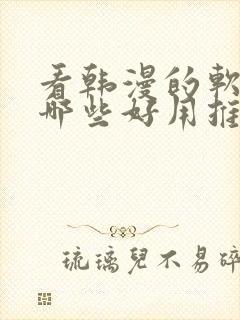 看韩漫的软
哪些好用推
琉璃兒不易碎